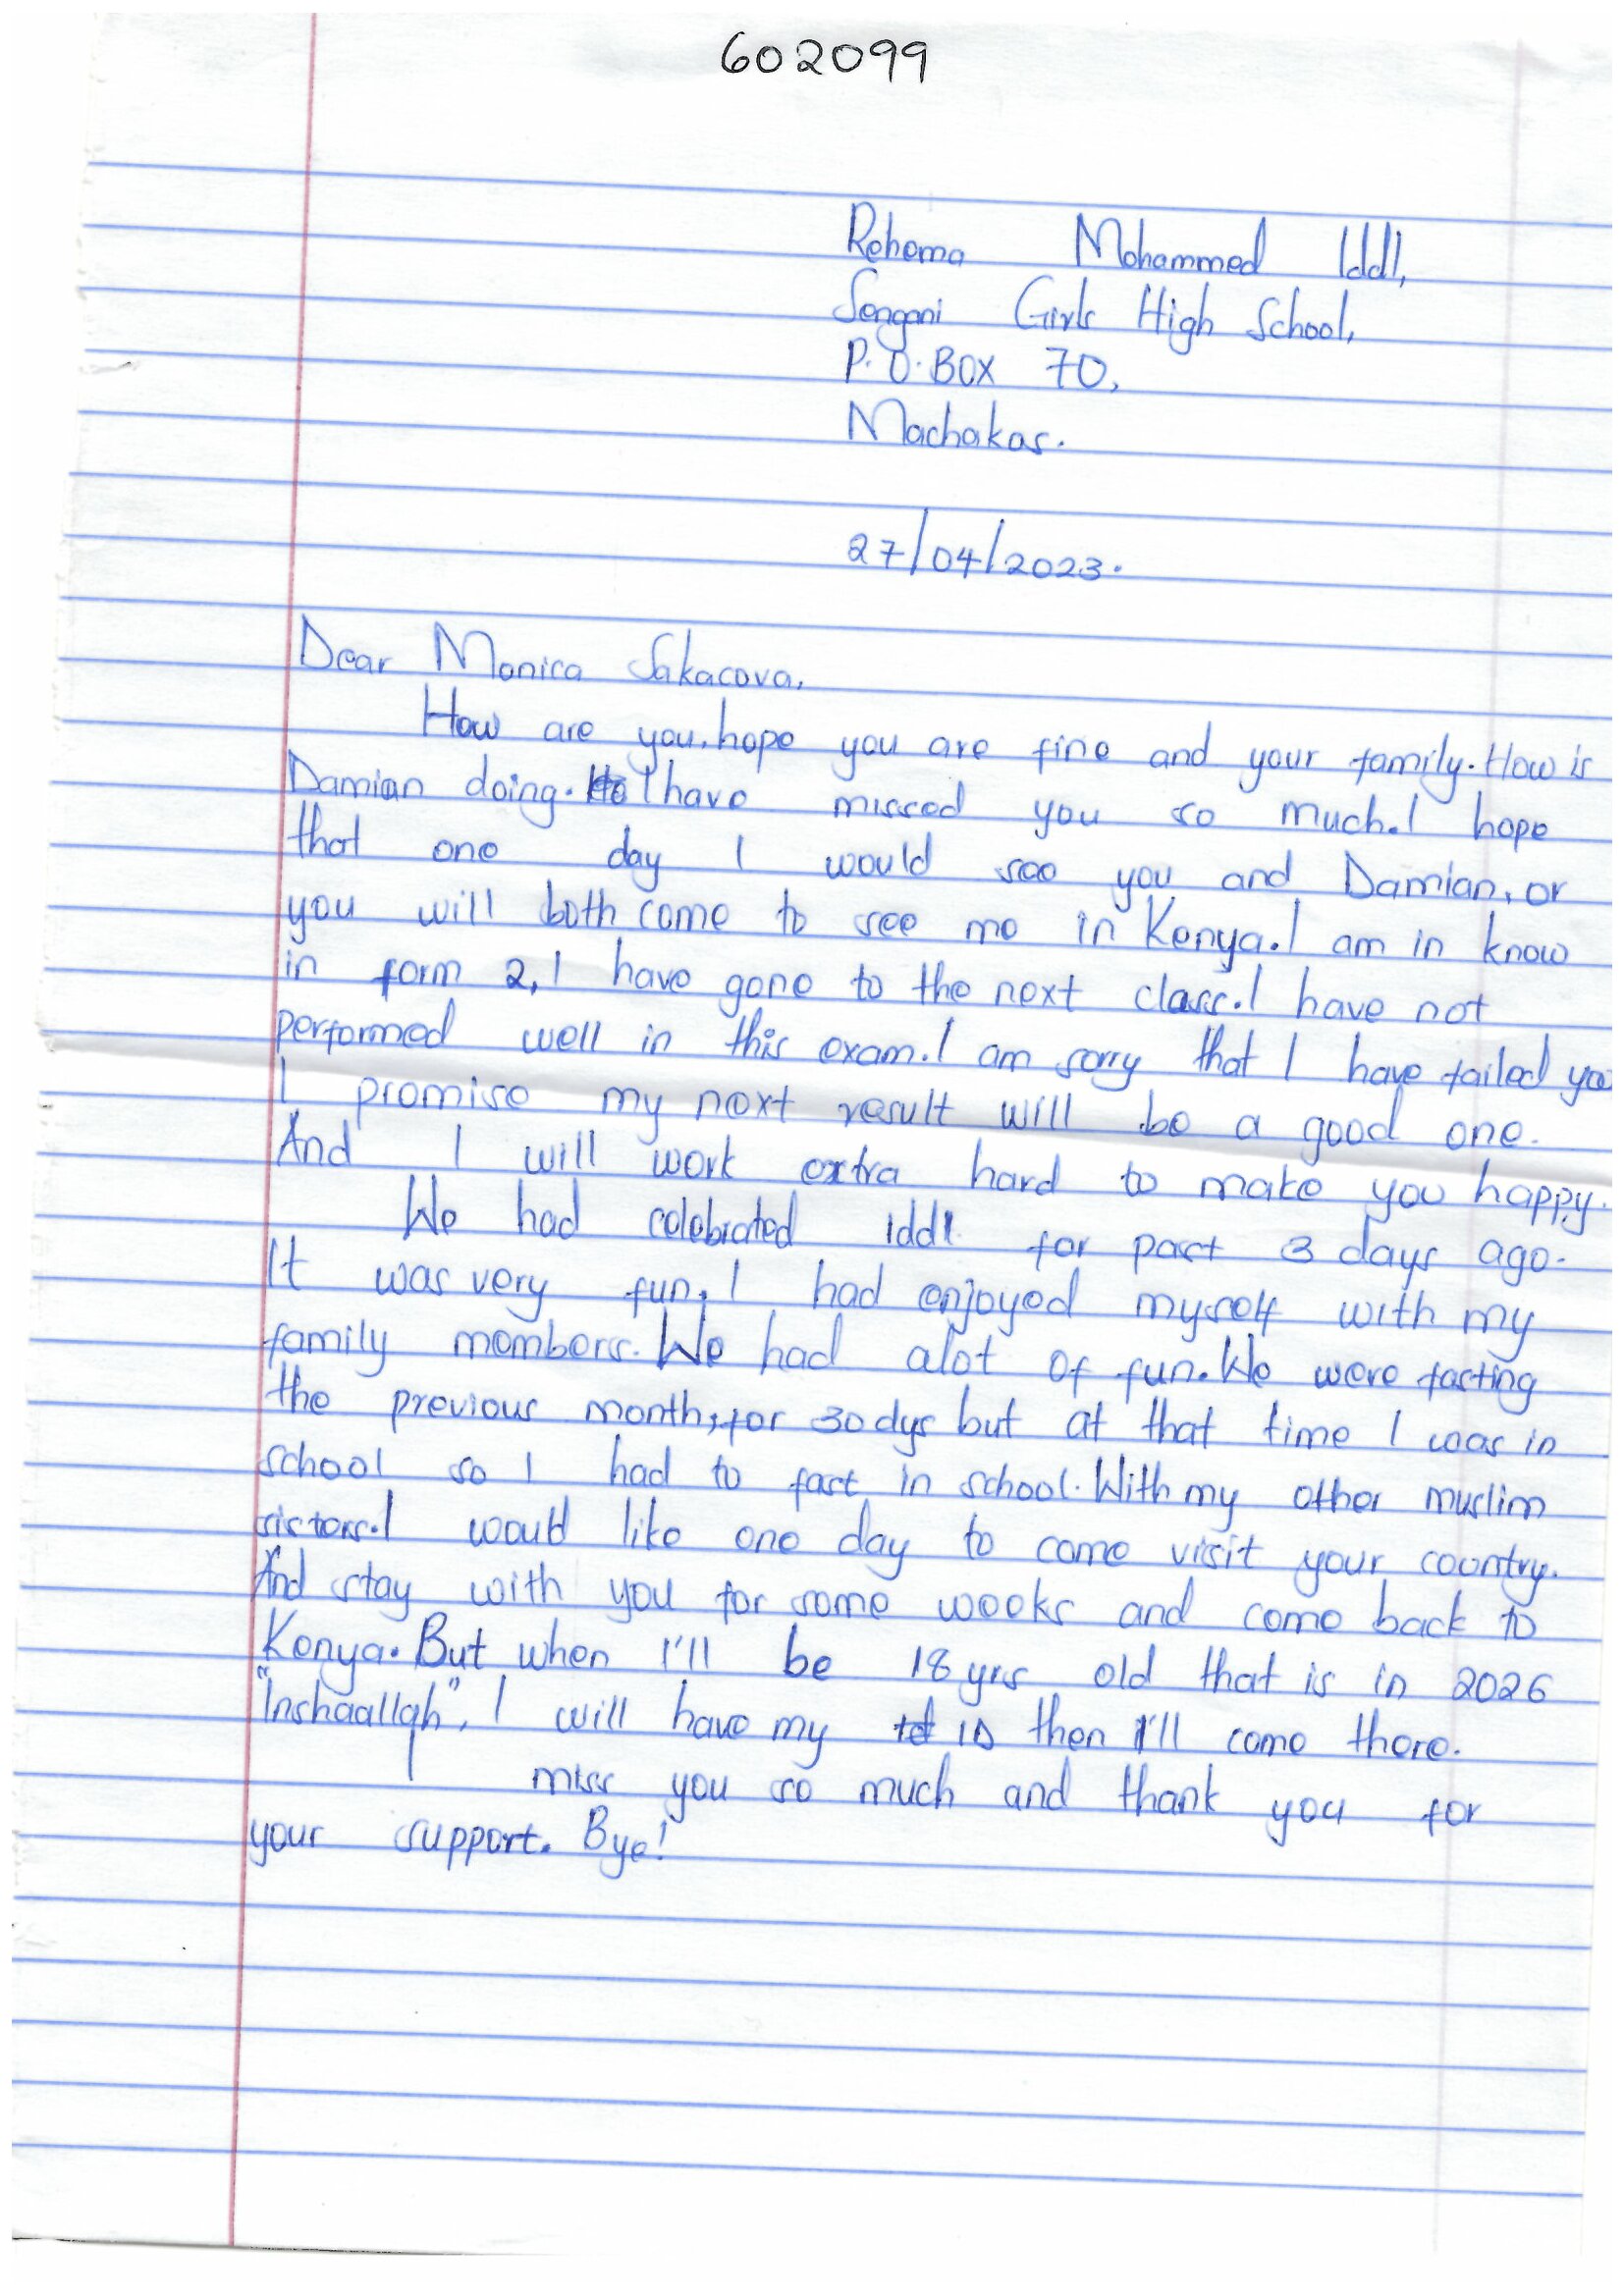 602099
Rehema Mohammed Iddi,
Sengani Girls High School,
P.O. BOX 70,
Machakos.
27/04/2023.
Dear Monica Sakacova,
How are you, hope you are fine and your family. How is
Damian doing. I have missed you so much. I hope
that one day I would see you and Damian, or
you will both come to see me in Kenya. I am in know
in form 2, I have gone to the next class. I have not
performed well in this exam. I am sorry that I have failed you
I promise my next result will be a good one.
And I will work extra hard to make you happy.
We had celebrated iddi for past 3 days ago.
It was very fun, I had enjoyed myself with my
family members. We had alot of fun. We were fasting
the previous month, for 30 dys but at that time I was in
school so I had to fast in school. With my other muslim
sisters. I would like one day to come visit your country.
And stay with you for some weeks and come back to
Kenya. But when I'll be 18 yrs old that is in 2026
"Inshaallah", I will have my ID then I'll come there.
I miss you so much and thank you for
your support. Bye!